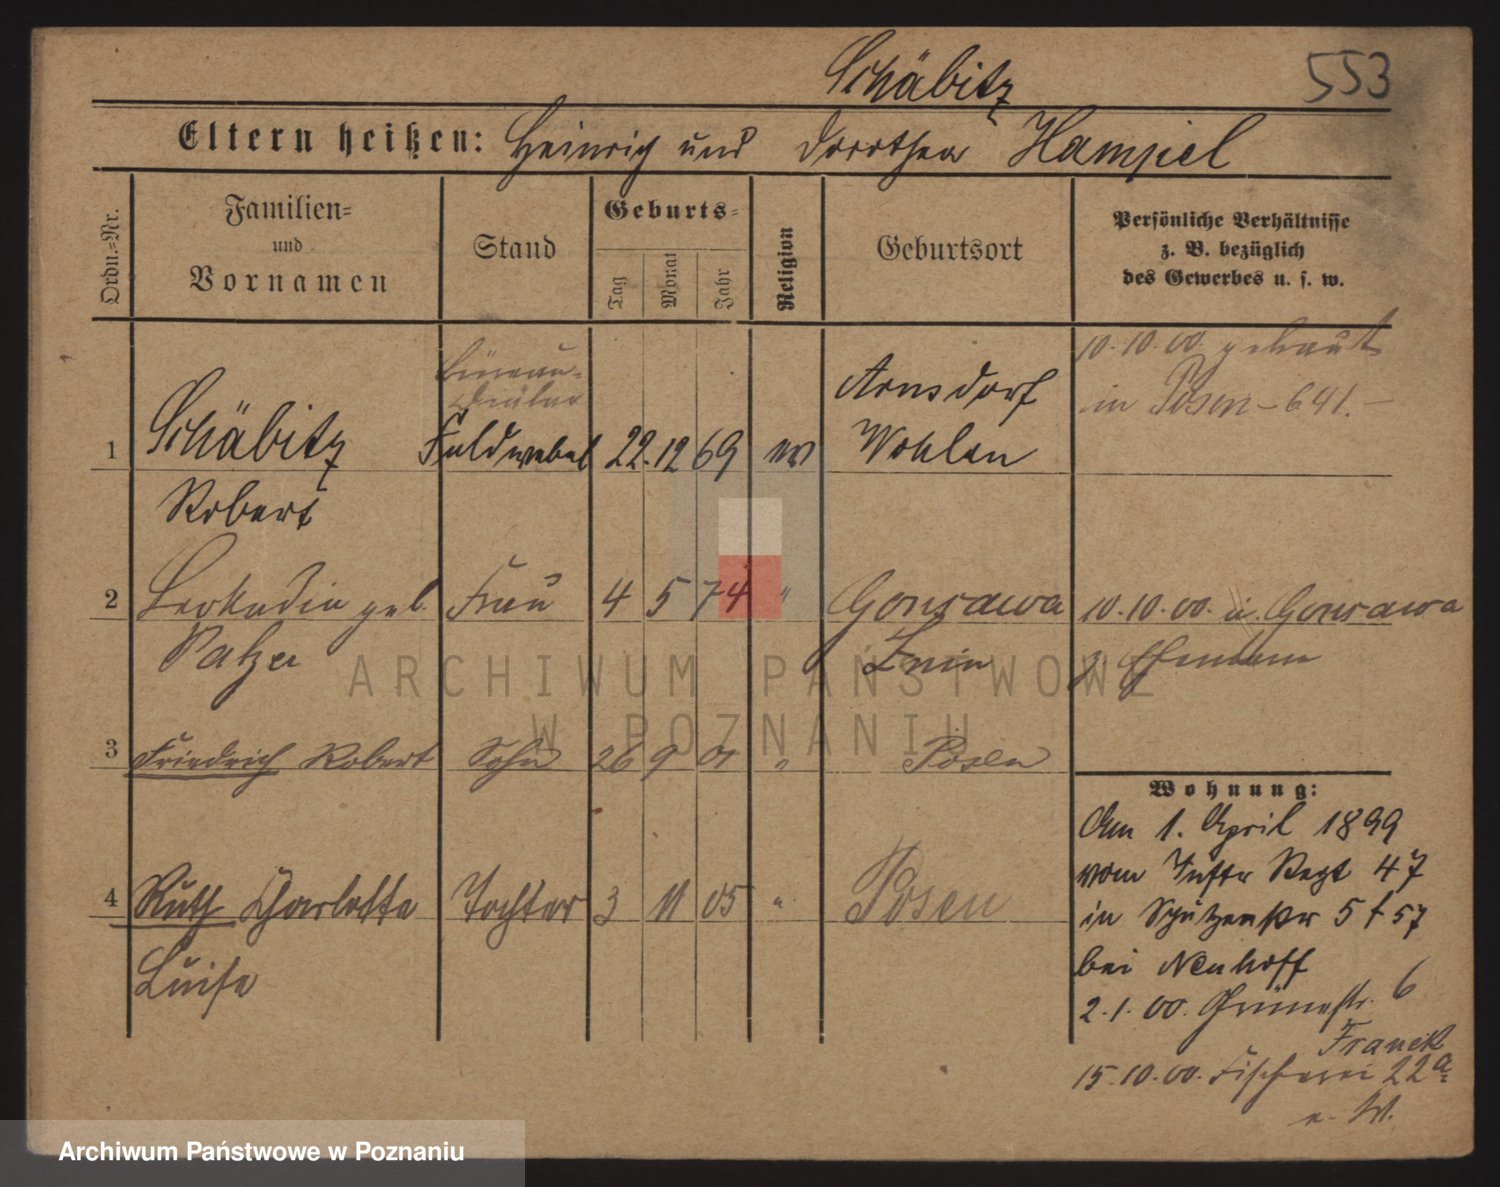 Schäbitz
553
Eltern heißen: Heinrich und Dorothea Hampiel
Ordn.-Nr.
Familien-
und
Vornamen
Stand
Geburts-
Tag
Monat
Jahr
Religion
Geburtsort
Persönliche Verhältnisse
z. B. bezüglich
des Gewerbes u. s. w.
10.10.00. getraut
in Posen - 641. -
Büreau-
Arnsdorf
1 Schäbitz Feldwebel 22. 12 69 ev Wohlau
Robert
2 Leokadia geb. Frau 4 5 74 " Gonsawa 10.10.00. in Gonsawa
Patzer Znin
3 Friedrich Robert Sohn 26 9 01 " Posen
Wohnung:
Am 1. April 1899
vom Inftr Regt 47
4 Ruth Charlotte Tochter 3 11 05 " Posen
in Schützenstr 5 f 57
Luise
bei Neuhoff
2.1.00. Grünestr. 6
Franck
15.10.00. Fischerei 22a
e. W.
ARCHIWUM PAŃSTWOWE
W POZNANIU
Archiwum Państwowe w Poznaniu